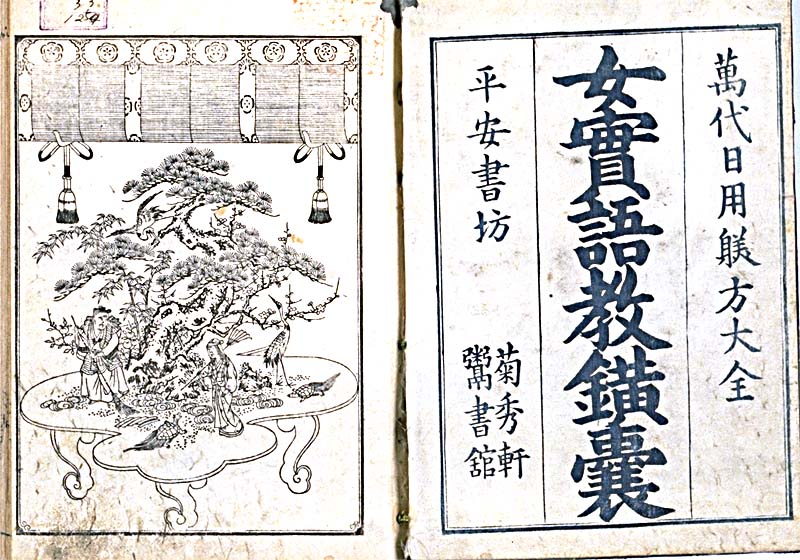 萬代日用躾方大全
女實語教鐄嚢
平安書坊
菊秀軒
鬻書舘
33
1254